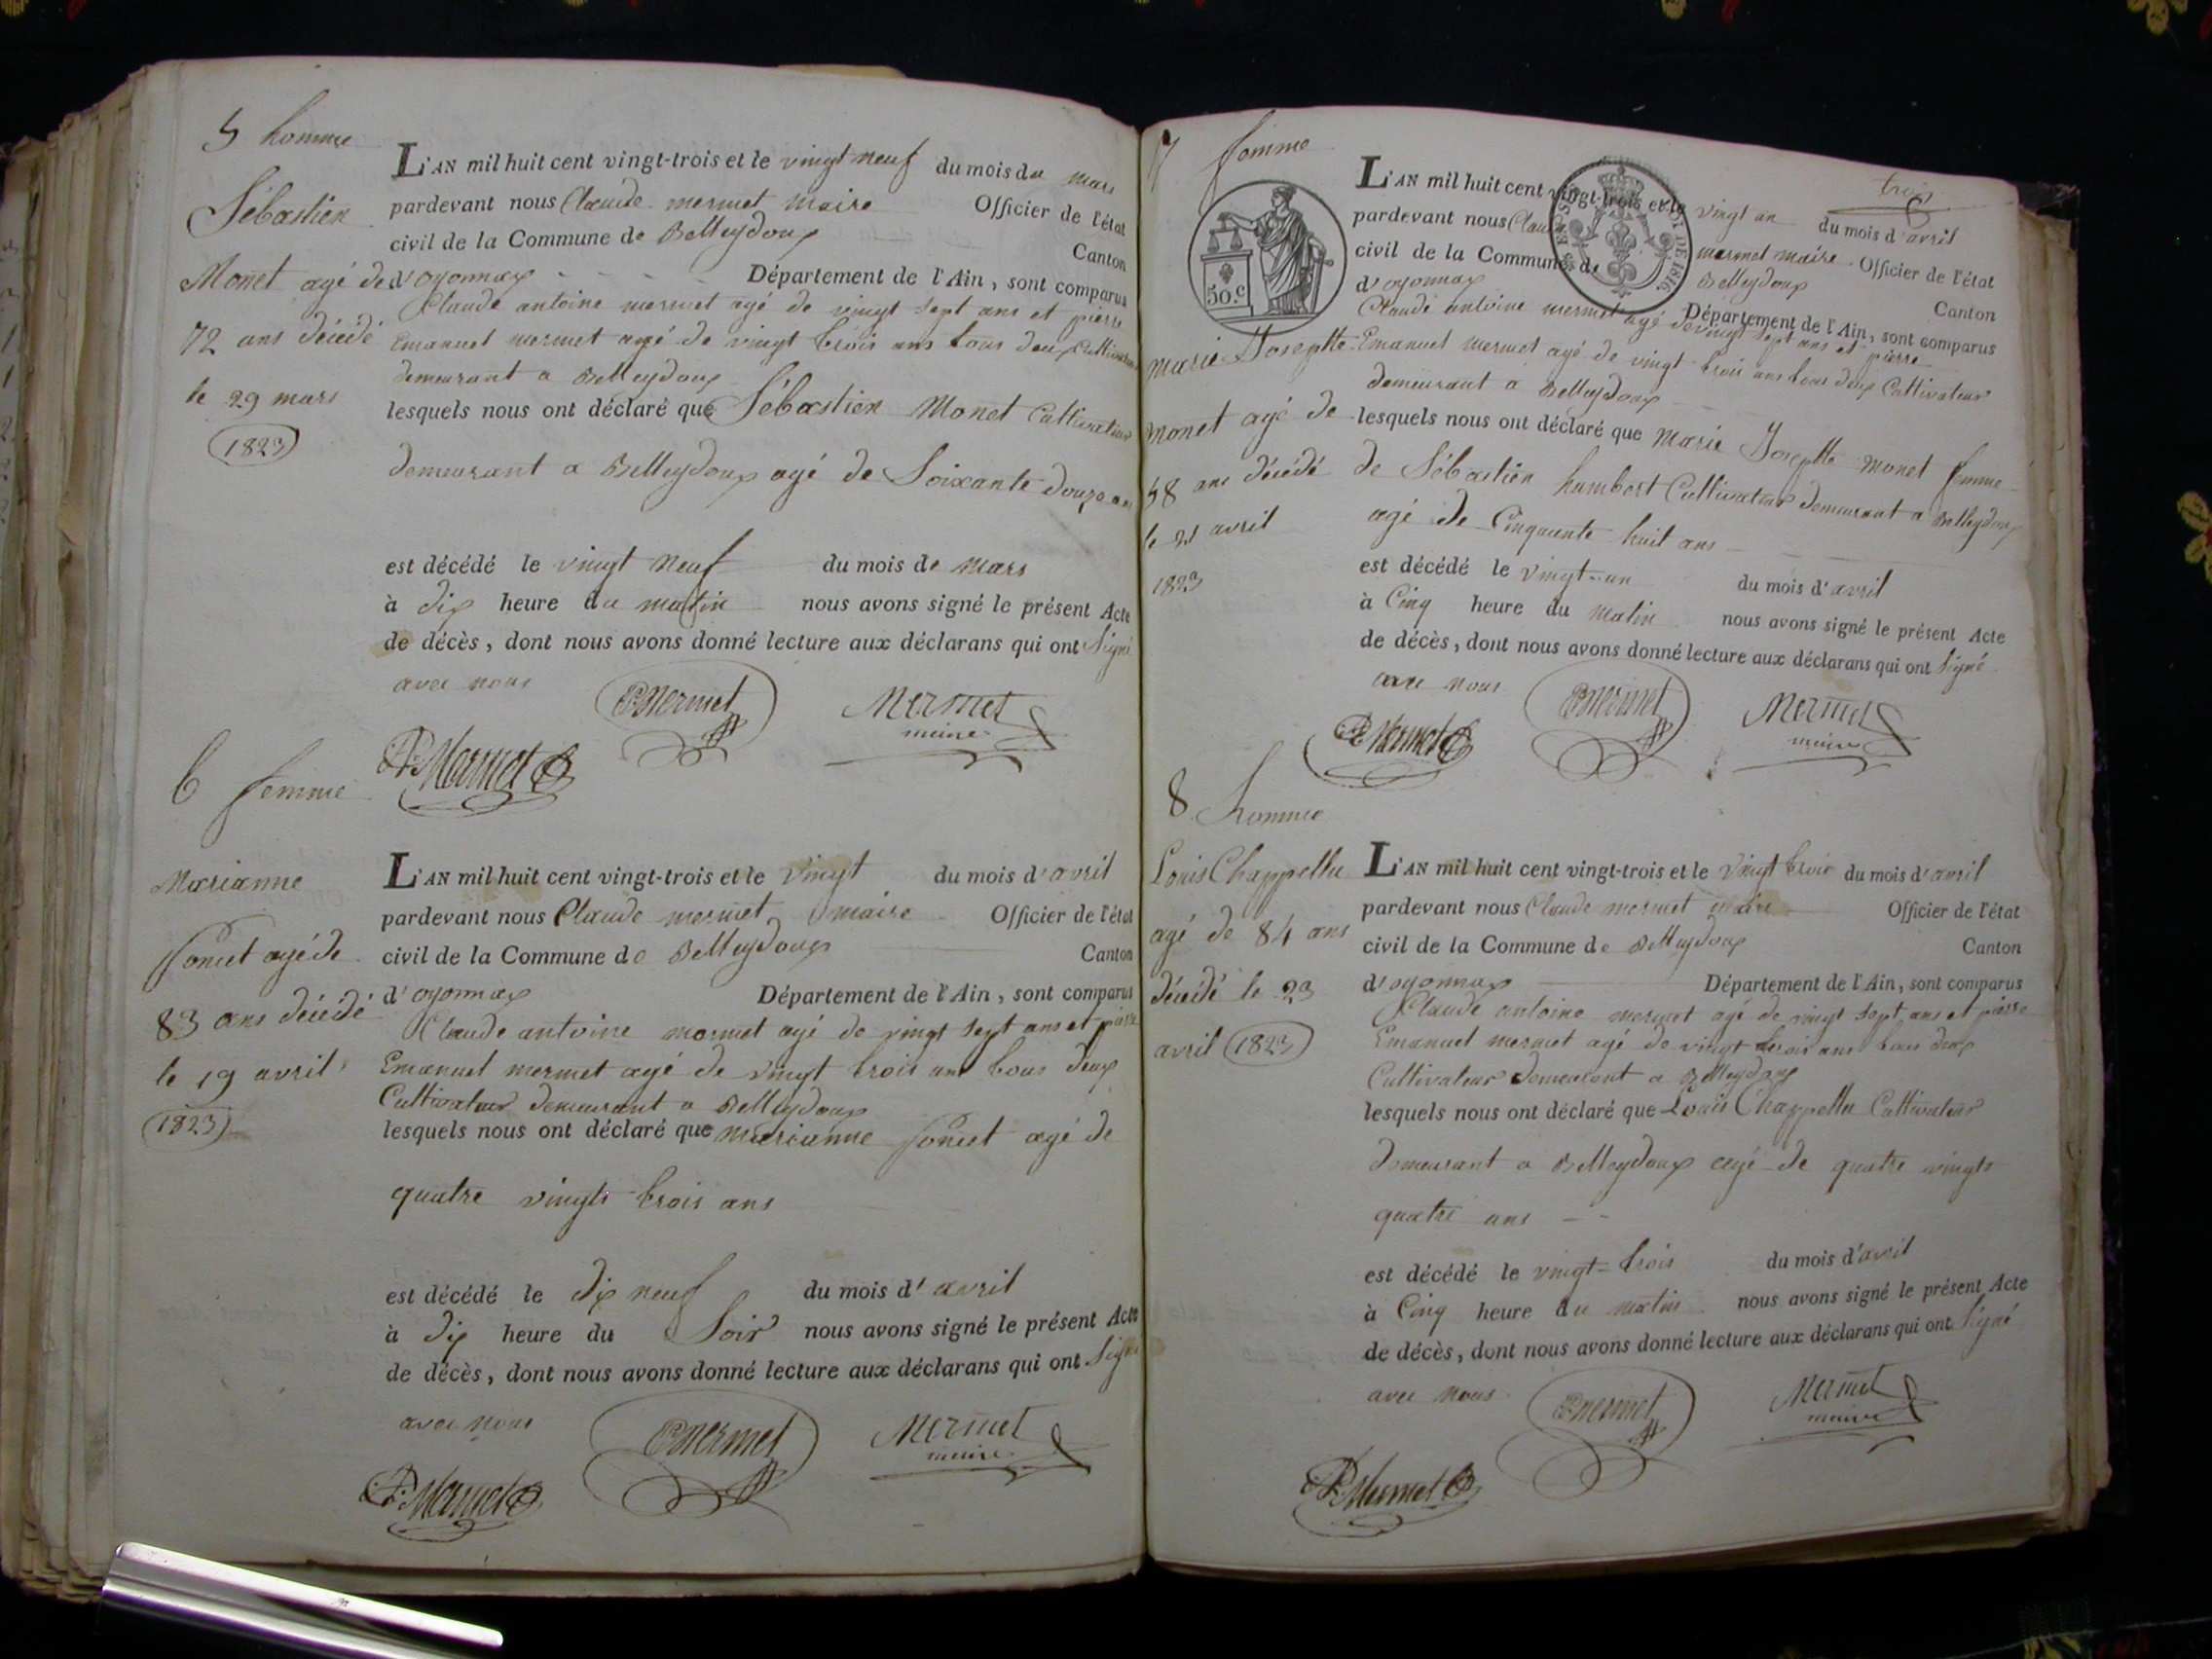 5 homme
Sébastien
Monet agé de
72 ans décédé
le 29 mars
1823
L'AN mil huit cent vingt-trois et le vingt neuf du mois de mars
pardevant nous Claude mermet maire Officier de l'état
civil de la Commune de Belleydoux Canton
d'oyonnax Département de l'Ain, sont comparus
Claude antoine mermet agé de vingt sept ans et pierre
Emanuel mermet agé de vingt trois ans tous deux Cultivateur
demeurant a Belleydoux
lesquels nous ont déclaré que Sébastien Monet Cultivateur
demeurant a Belleydoux agé de Soixante douze ans
est décédé le vingt neuf du mois de mars
à dix heure du matin nous avons signé le présent Acte
de décès, dont nous avons donné lecture aux déclarans qui ont Signé
avec nous
Mermet
Mermet
maire
Mermet
6 femme
Marianne
Poncet agé de
83 ans décédé
le 19 avril
1823
L'AN mil huit cent vingt-trois et le vingt du mois d'avril
pardevant nous Claude mermet maire Officier de l'état
civil de la Commune de Belleydoux Canton
d'oyonnax Département de l'Ain, sont comparus
Claude antoine mermet agé de vingt sept ans et pierre
Emanuel mermet agé de vingt trois ans tous deux
Cultivateur demeurant a Belleydoux
lesquels nous ont déclaré que marianne Poncet agé de
quatre vingts trois ans
est décédé le dix neuf du mois d'avril
à dix heure du Soir nous avons signé le présent Acte
de décès, dont nous avons donné lecture aux déclarans qui ont Signé
avec nous
Mermet
Mermet
maire
Mermet
trois
7 femme
50.c
LOI DE 1816.
marie Josephte
monet agé de
58 ans décédé
le 21 avril
1823
L'AN mil huit cent vingt-trois et le vingt un du mois d'avril
pardevant nous Claude mermet maire Officier de l'état
civil de la Commune de Belleydoux Canton
d'oyonnax Département de l'Ain, sont comparus
Claude antoine mermet agé de vingt sept ans et pierre
Emanuel mermet agé de vingt trois ans tous deux Cultivateur
demeurant a Belleydoux
lesquels nous ont déclaré que Marie Josephte monet femme
de Sébastien humbert Cultivateur demeurant a Belleydoux
agé de Cinquante huit ans
est décédé le vingt-un du mois d'avril
à Cinq heure du matin nous avons signé le présent Acte
de décès, dont nous avons donné lecture aux déclarans qui ont Signé
avec nous
Mermet
Mermet
maire
Mermet
8 homme
Louis Chappellu
agé de 84 ans
décédé le 23
avril 1823
L'AN mil huit cent vingt-trois et le vingt trois du mois d'avril
pardevant nous Claude mermet maire Officier de l'état
civil de la Commune de Belleydoux Canton
d'oyonnax Département de l'Ain, sont comparus
Claude antoine mermet agé de vingt sept ans et pierre
Emanuel mermet agé de vingt trois ans tous deux
Cultivateur demeurant a Belleydoux
lesquels nous ont déclaré que Louis Chappellu Cultivateur
demeurant a Belleydoux agé de quatre vingts
quatre ans
est décédé le vingt-trois du mois d'avril
à Cinq heure du matin nous avons signé le présent Acte
de décès, dont nous avons donné lecture aux déclarans qui ont Signé
avec nous
Mermet
Mermet
maire
Mermet